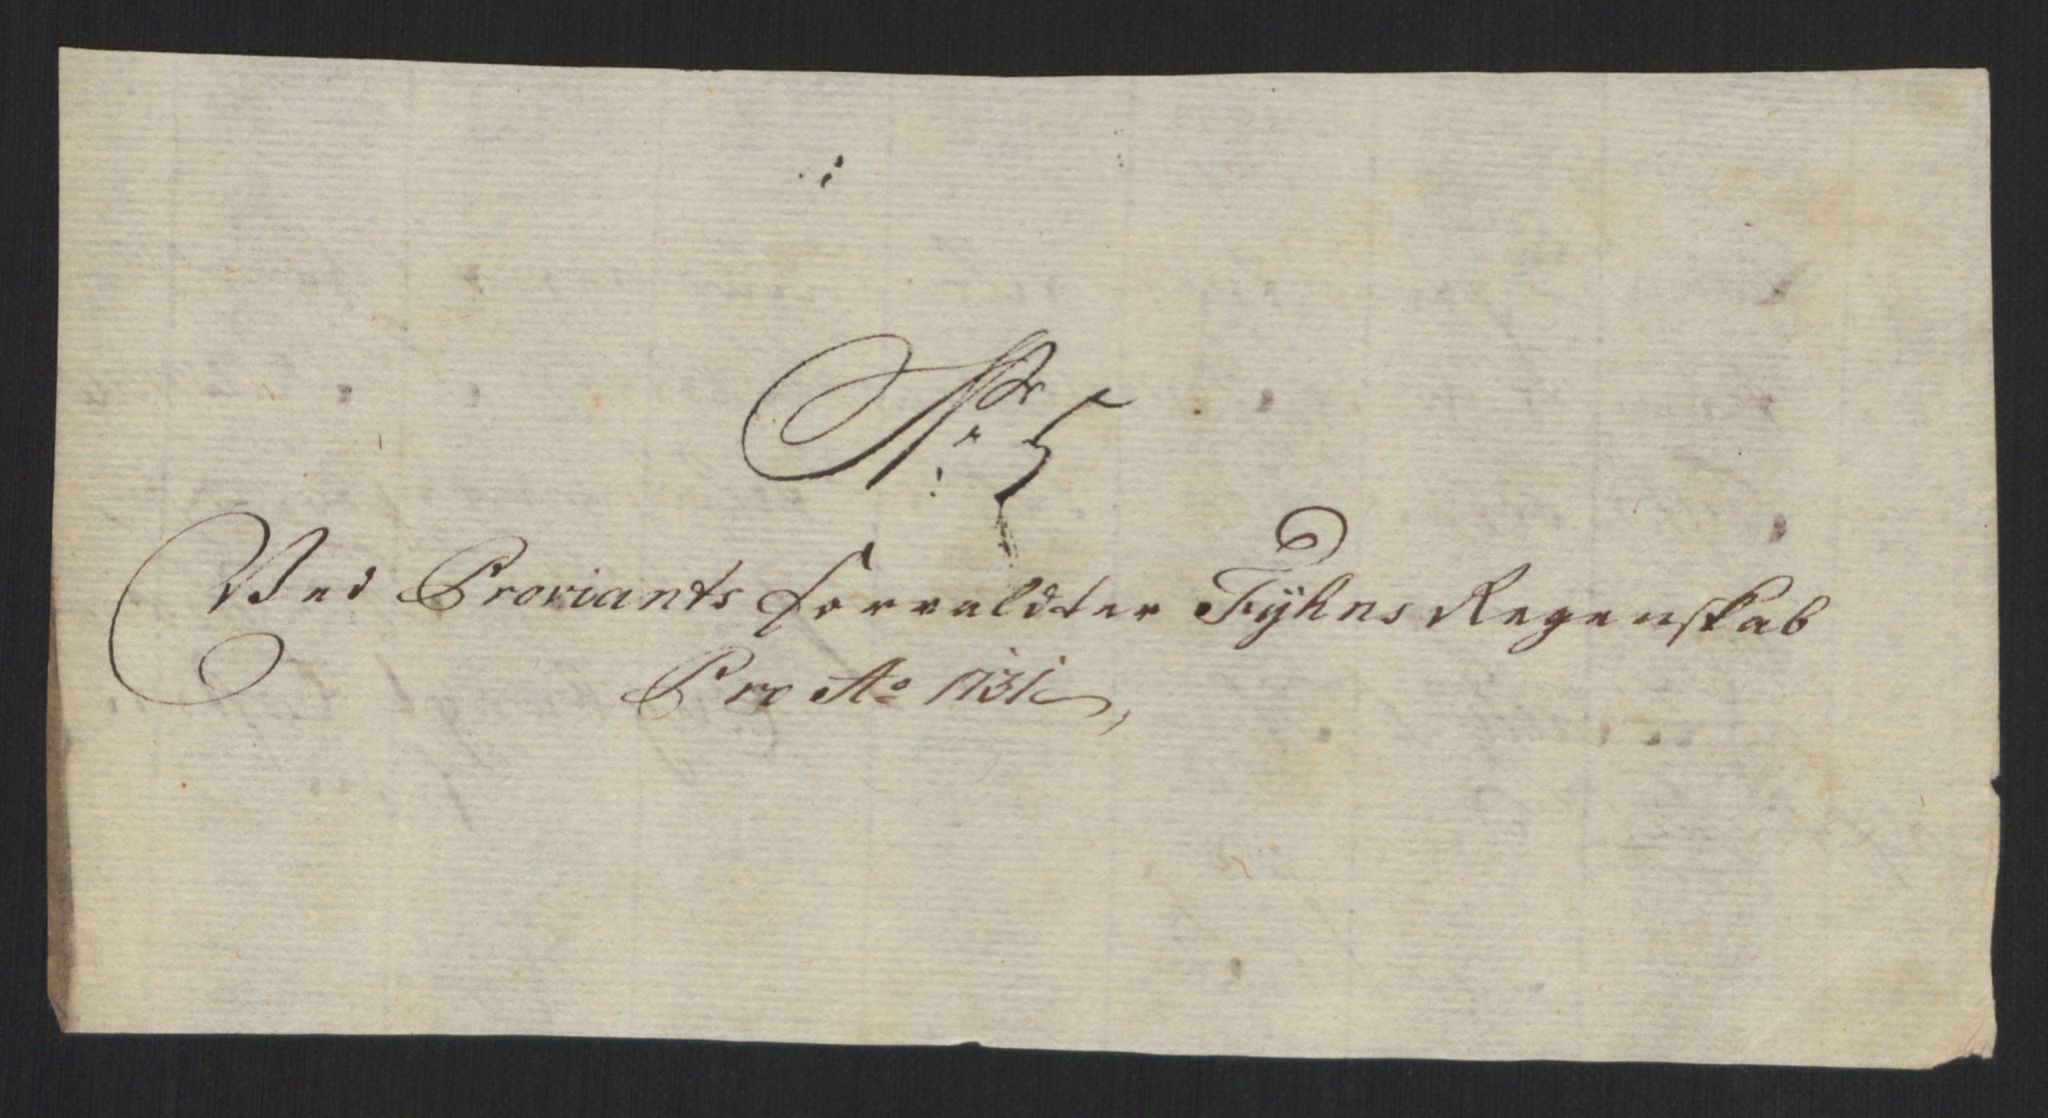 Nr 5
Ved Proviants forvaldter Fÿhns Regenskab
Pro Ao 1731,